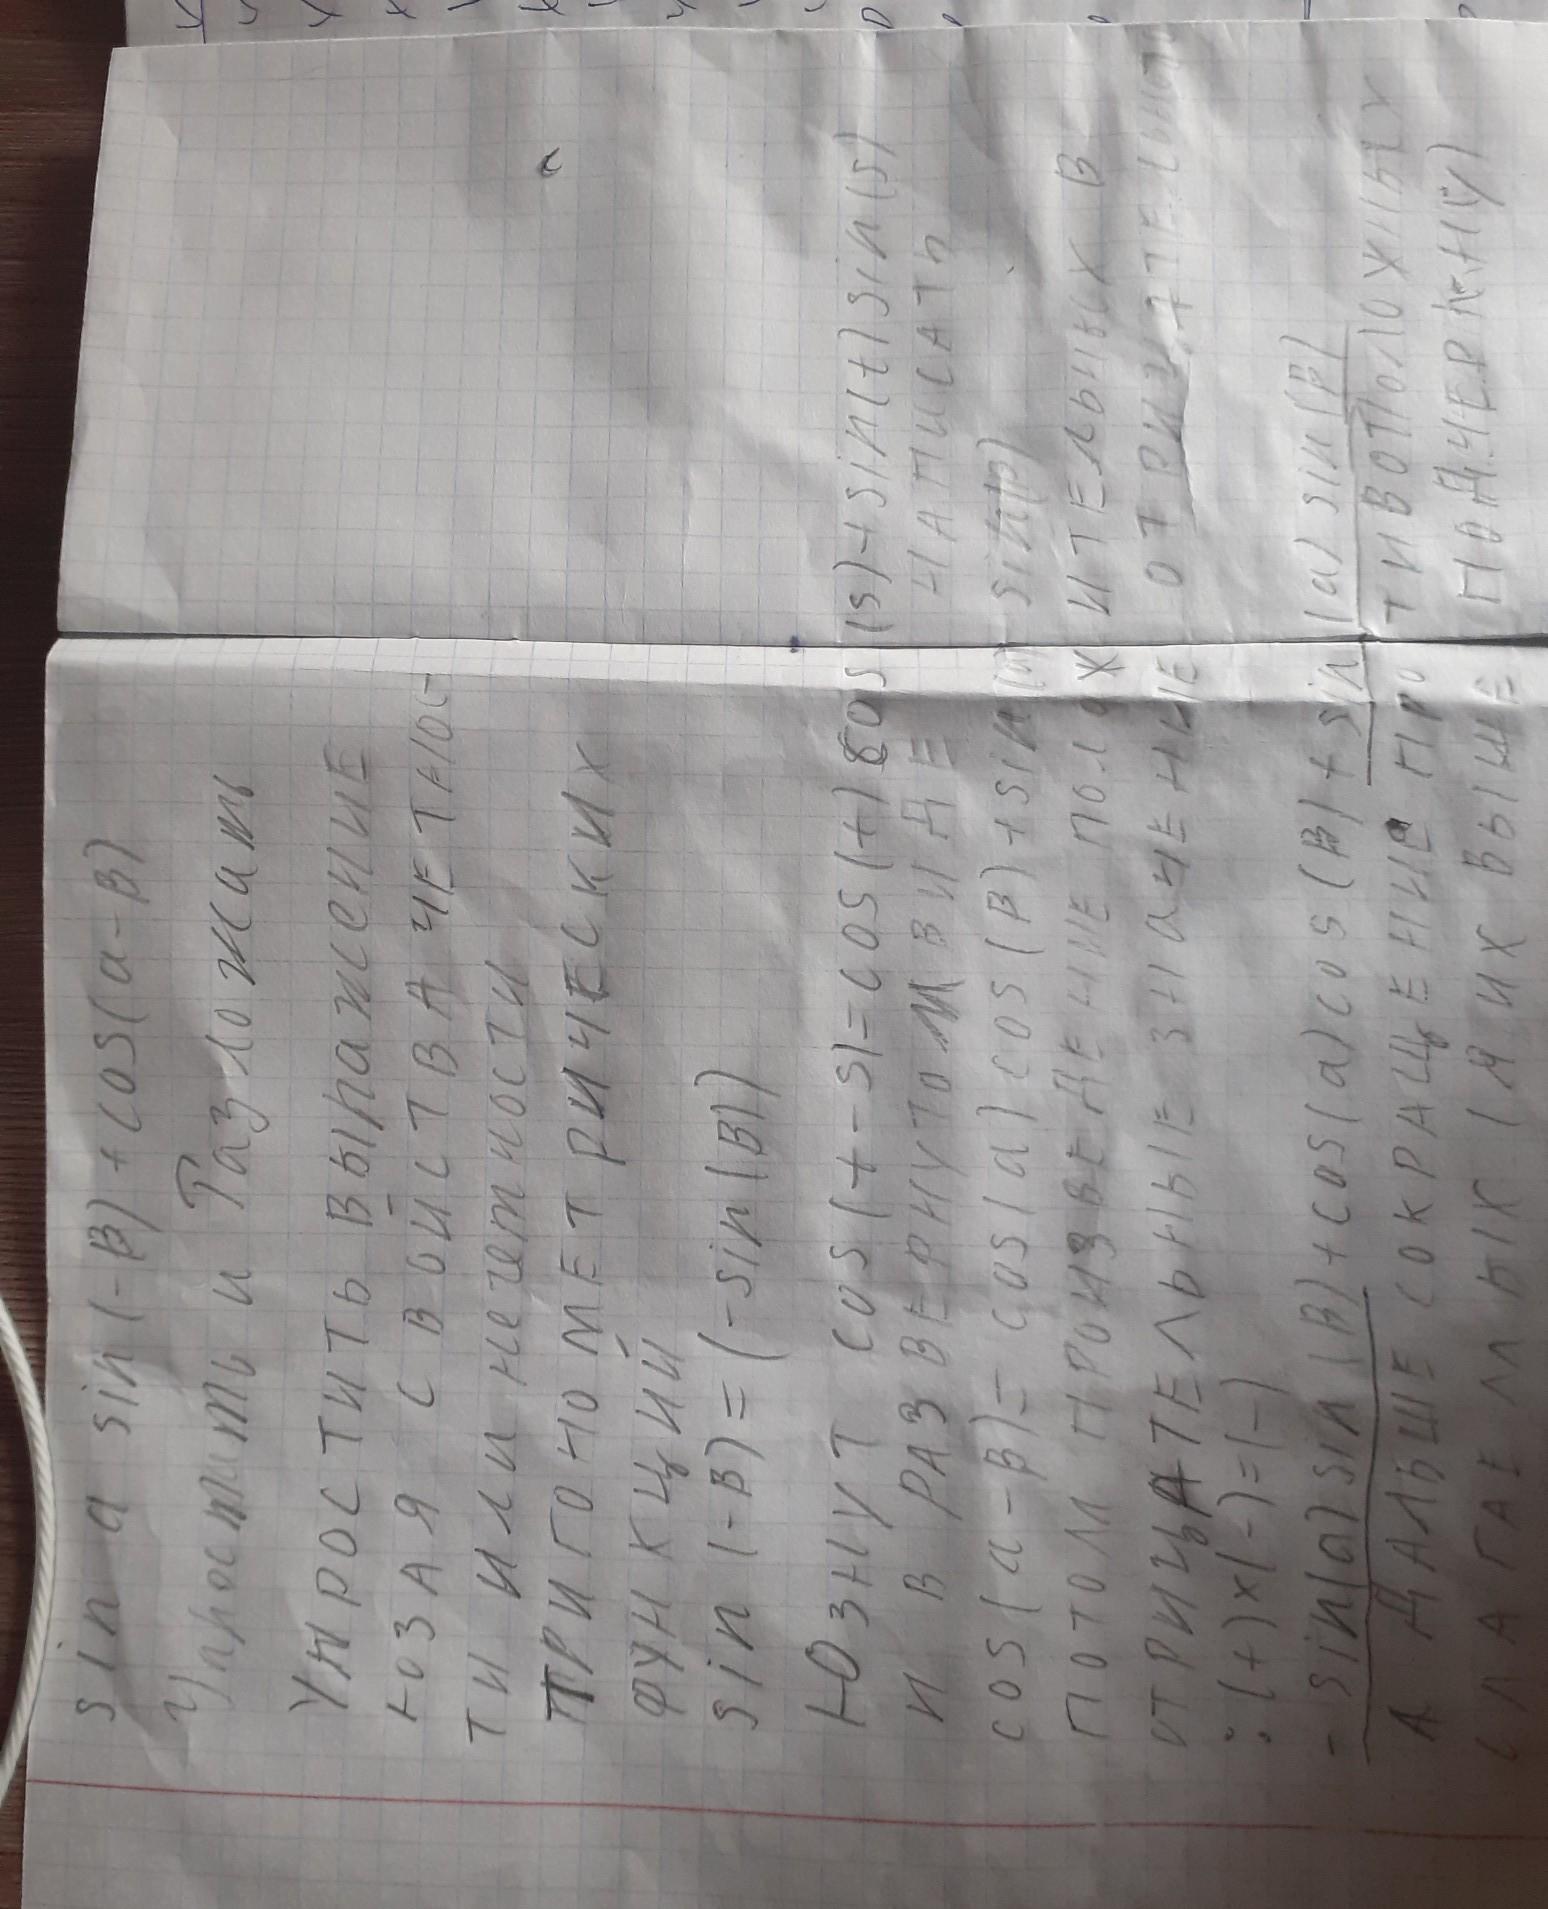 sin a sin(-B) + cos(a-B)
Упростить и Разложить
УПРОСТИТЬ ВЫПАЖЕНИЕ
ЮЗАЯ СВОЙСТВА ЧЕТНОС-
ТИ ИЛИ нечетности
ТРИГОНОМЕТРИЧЕСКИХ
ФУНКЦИЙ
sin(-B) = (-sin(B))
ЮЗНУТ cos(t-s)=cos(t)cos(s)+sin(t)sin(s)
И В РАЗВЕРНУТОМ ВИДЕ НАПИСАТЬ
cos(a-B)= cos(a)cos(B)+sin(a) sin(B)
ПОТОМ ПРОИЗВЕДЕНИЕ ПОЛОЖИТЕЛЬНЫХ В
ОТРИЦАТЕЛЬНЫЕ ЗНАЧЕНИЕ ОТРИЦАТЕЛЬНОЕ
: (+)x(-)=(-)
-sin(a)sin(B)+cos(a)cos(B)+sin(a)sin(B)
А ДАЛЬШЕ СОКРАЩЕНИЕ ПРОТИВОПОЛОЖНЫХ
СЛАГАЕМЫХ (ИХ ВЫШЕ ПОДЧЕРКНУ)